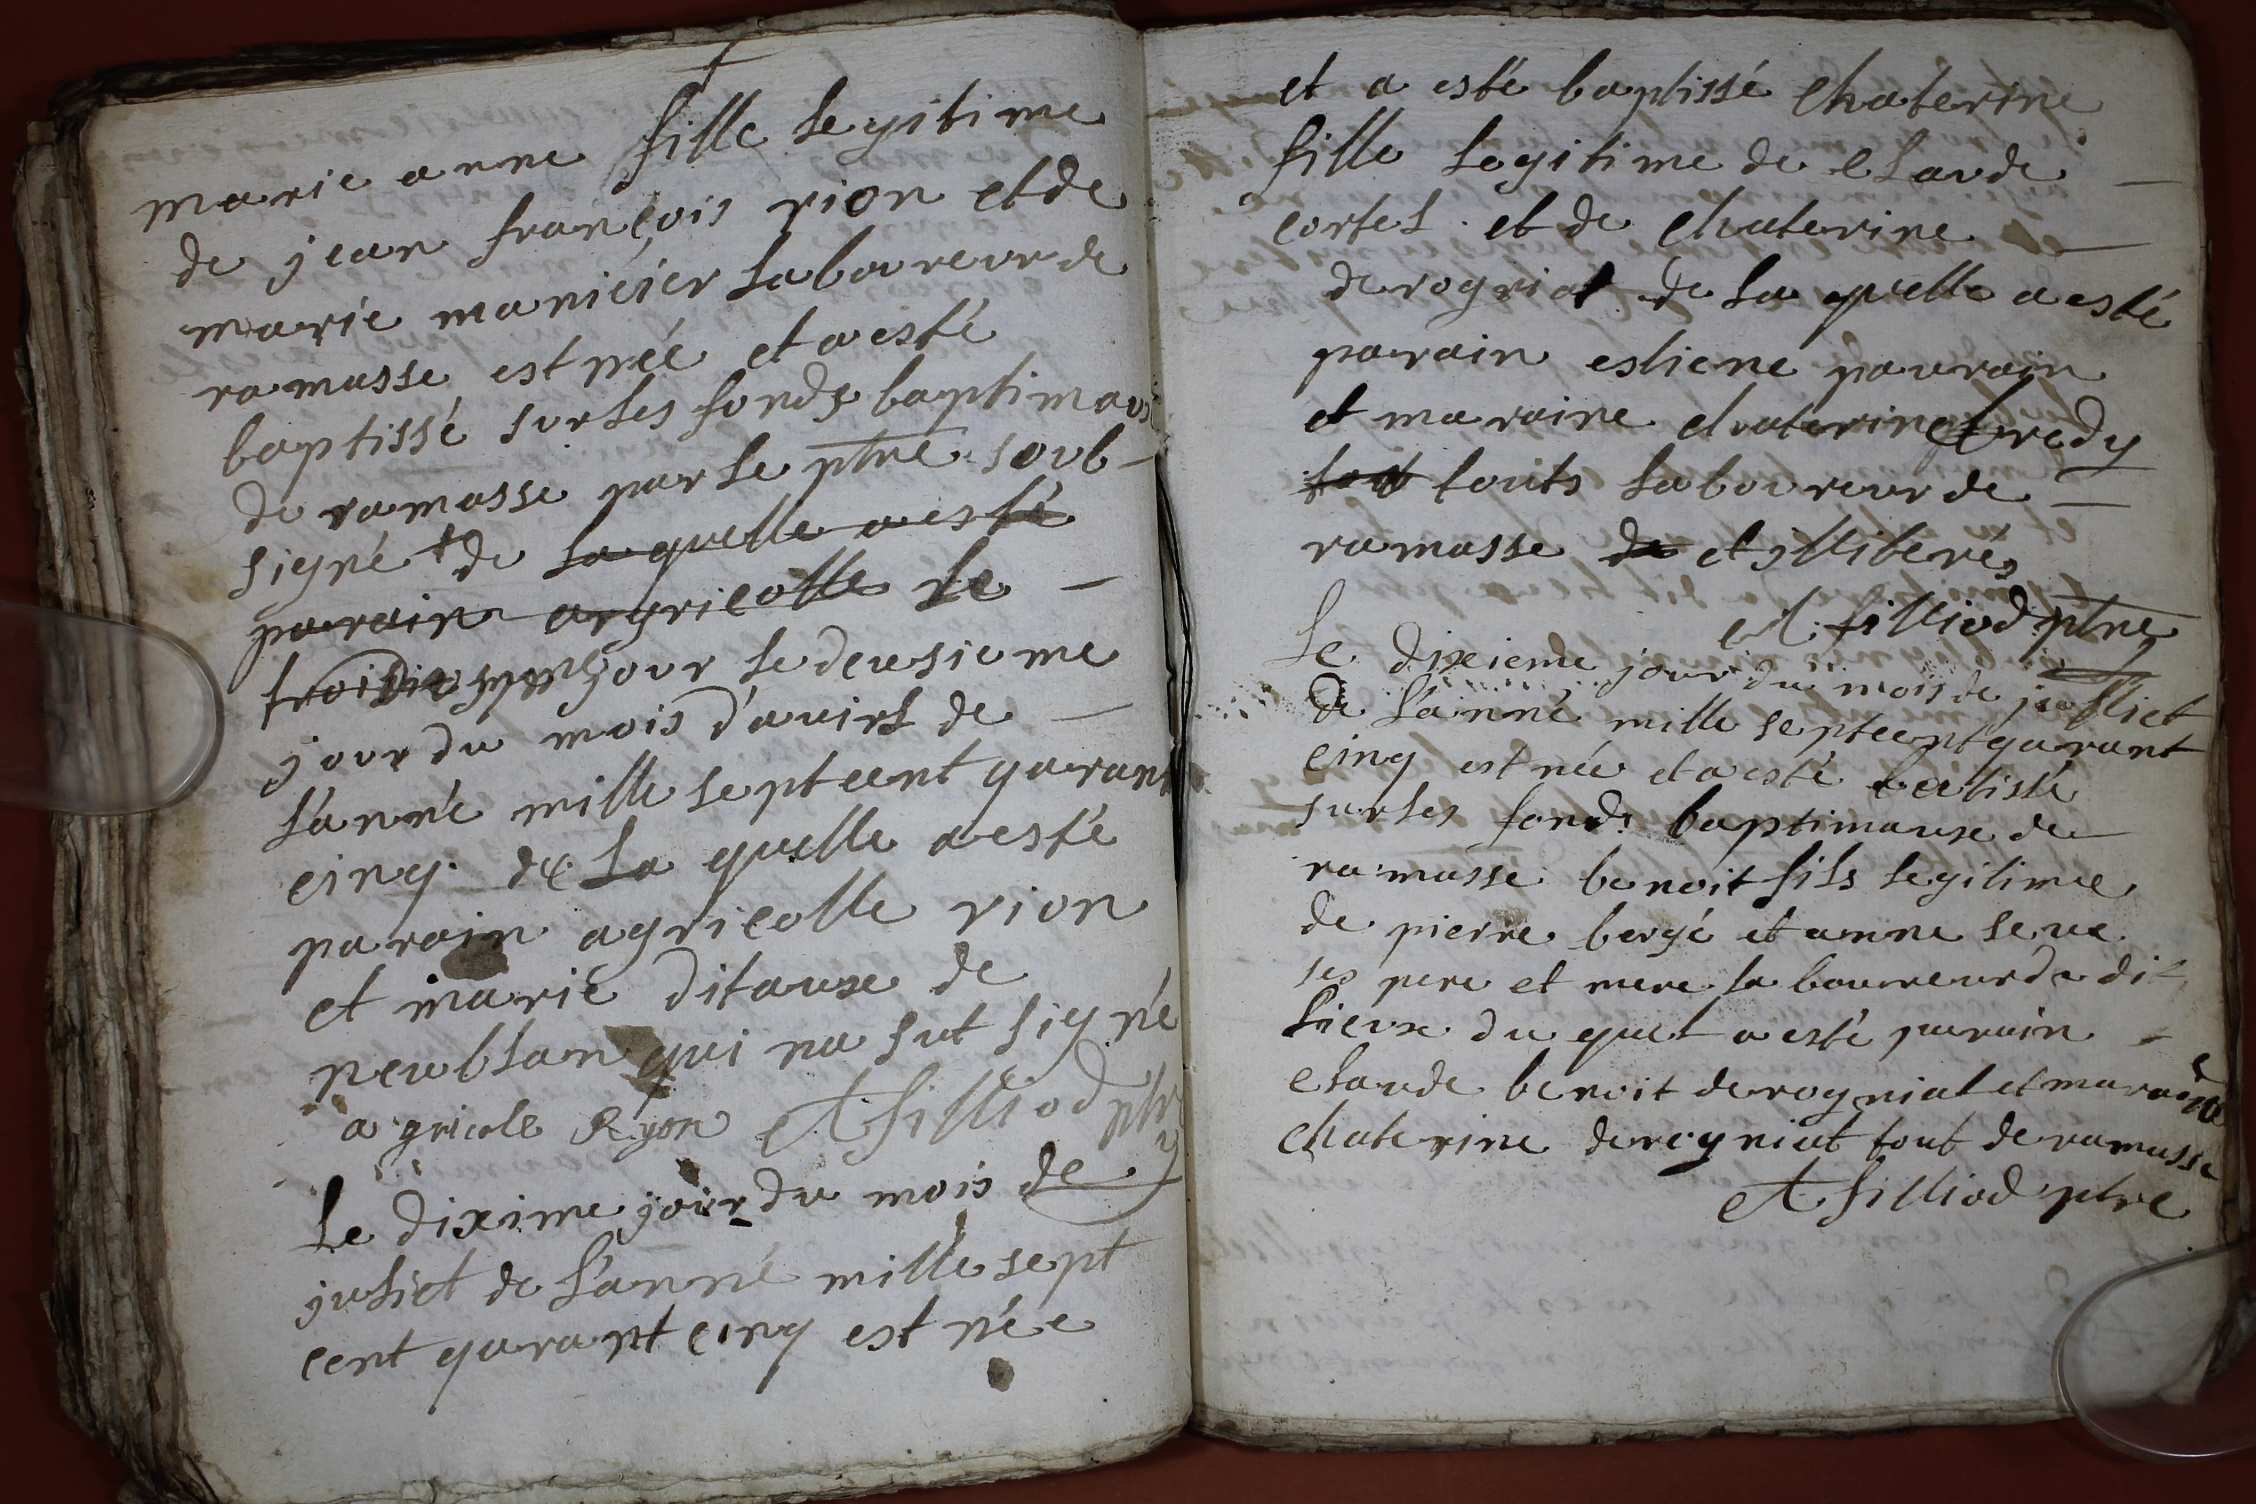 marie anne fille legitime
de jean françois rion et de
marie maniéier laboureur de
ramasse est née et a esté
baptissé sur les fonds baptimaus
de ramasse par le ptre soub-
signé de la quelle a esté
parain argricolle le -
jour le deusieme
jour du mois d'auirl de -
l'année mille septcent garant
cinq. de la quelle a esté
parain agricolle rion
et marie ditause de
neublan qui na sut signé
agricole Ryon A filliod ptre
Le dixime jour du mois de
juliet de l'anné mille sept
cent garant cinq est née
et a esté baptissé Chaterine
fille legitime de claude -
cortel. et de Chaterine -
derogniat de la quelle a esté
parain estiene paurain
et maraine chaterine fredy
touts laboureur de -
ramasse et illiterés
A. filliod ptre
Le dixieme jour du mois de julliet
De l'anné mille septcent garant
cinq est née et a esté batissé
sur les fonds baptimause de -
ramasse benoit fils legitime
de pierre bergé et anne seue
ses pere et mere laboureur de dit
lieux du quel a esté parain -
claude benoit derogniat et maraine
chaterine derogniat tout de ramasse
A filliod ptre